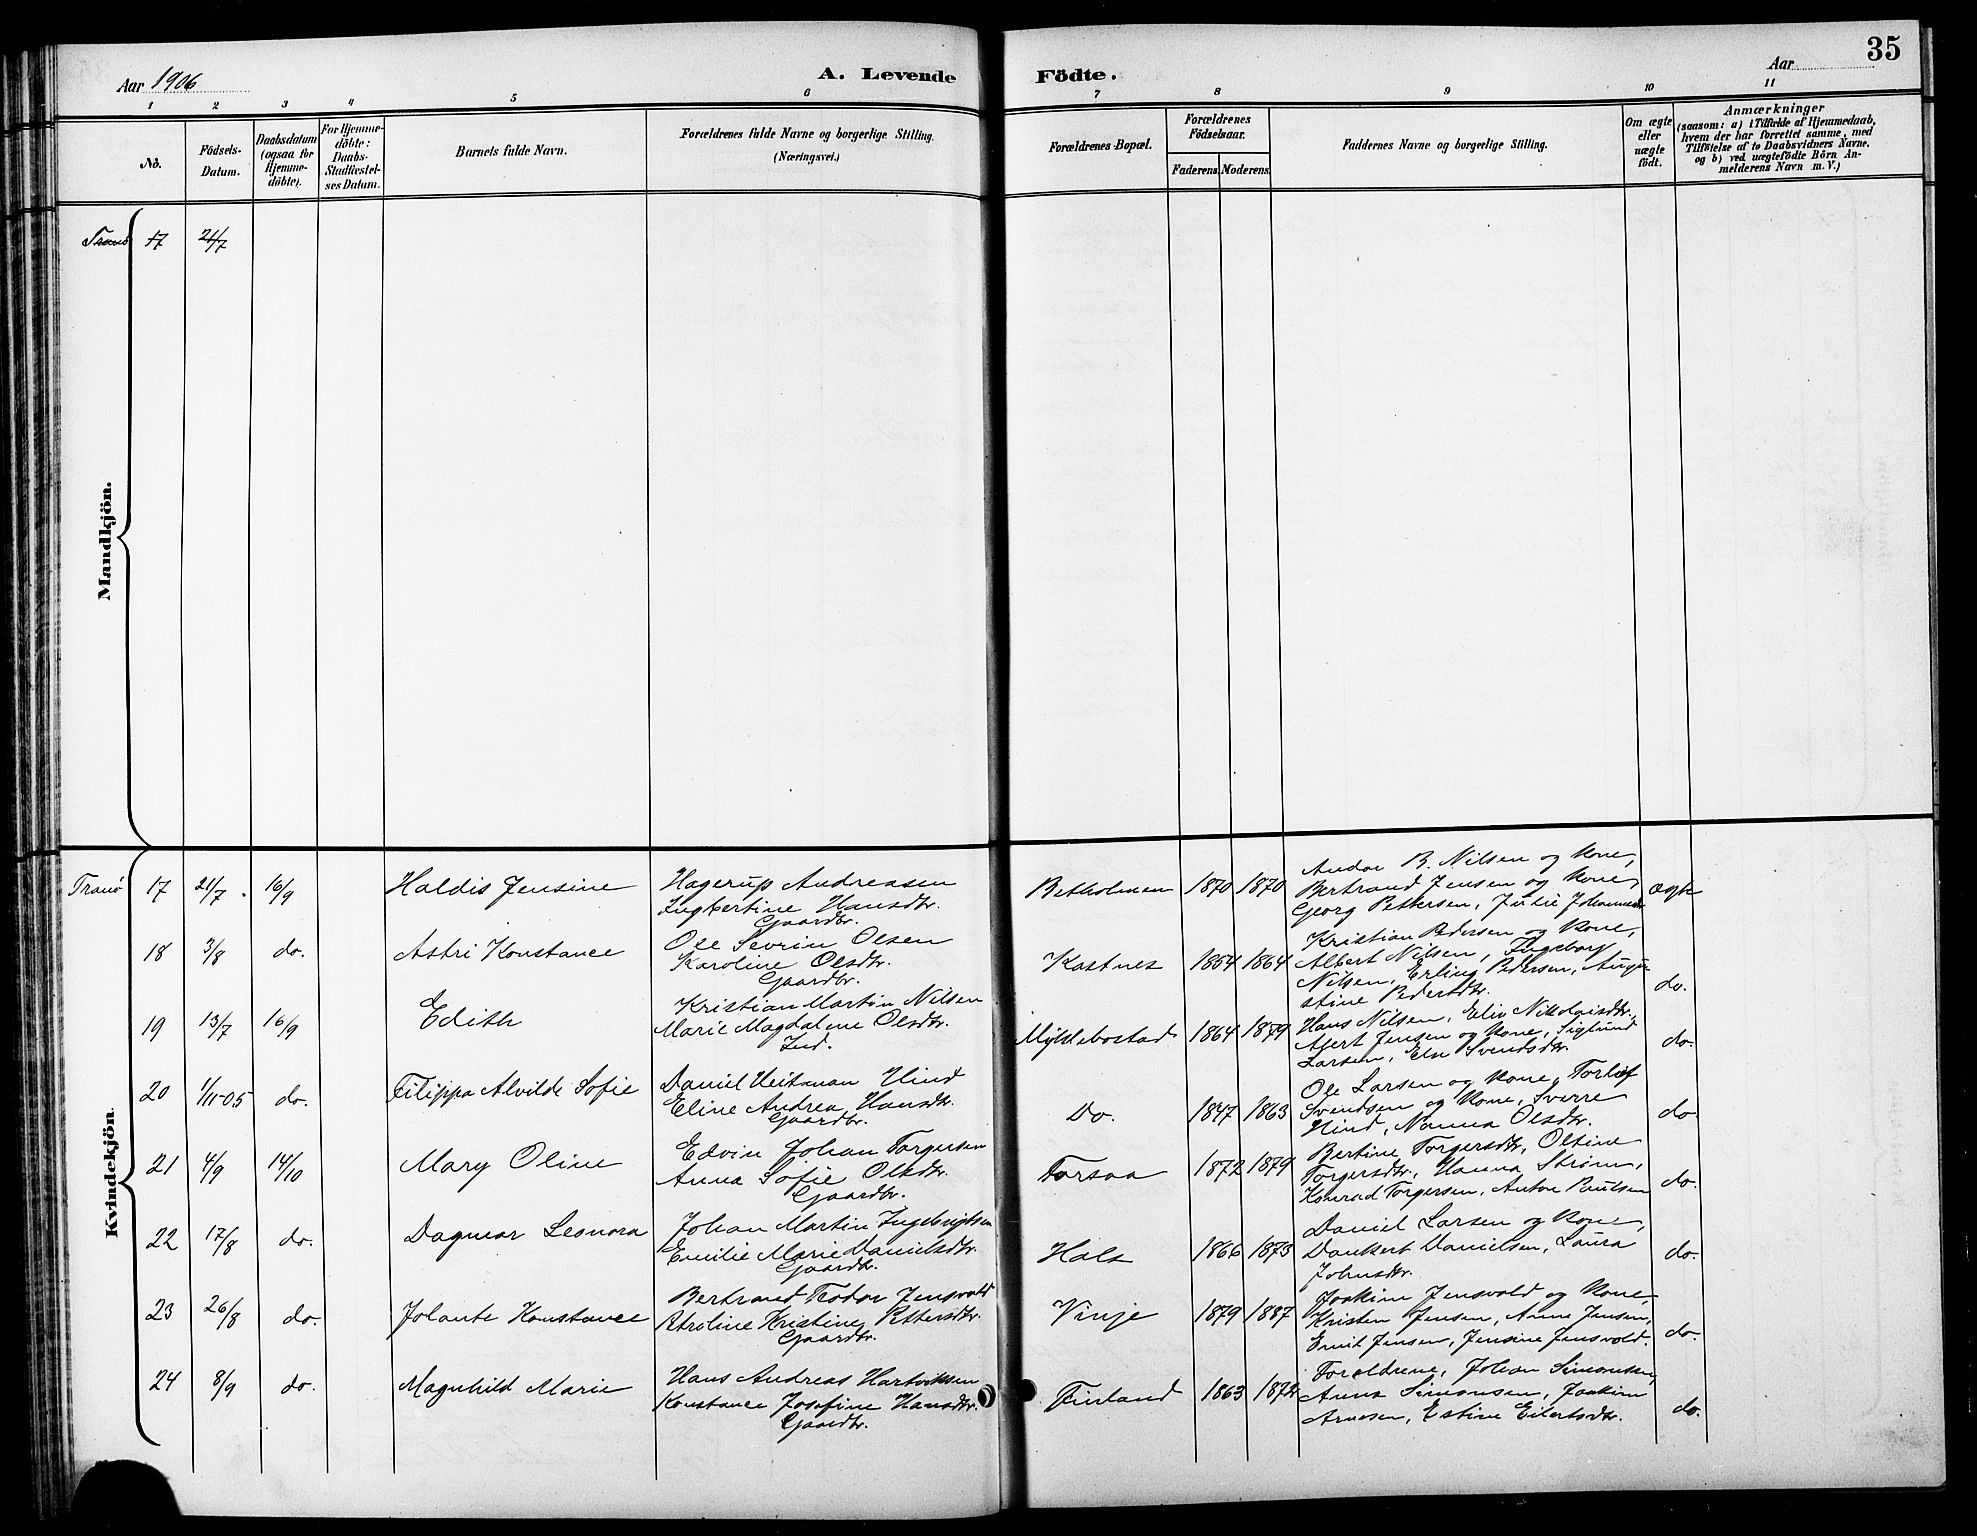 Aar 1906
A. Levende Födte.
Aar
35
1 2 3 4 5 6 7 8 9 10 11
No.
Födsels-Datum.
Daabsdatum (ogsaa for Hjemme-döbte).
For Hjemme-döbte: Daabs-Stadfæstel-ses Datum.
Barnets fulde Navn.
Forældrenes fulde Navne og borgerlige Stilling.
(Næringsvei.)
Forældrenes Bopæl.
Forældrenes Födselsaar.
Faderens. Moderens.
Faddernes Navne og borgerlige Stilling.
Om ægte eller uægte født.
Anmærkninger
(saasom: a) i Tilfælde af Hjemmedaab,
hvem der har forrettet samme, med
Tilföielse af to Daabsvidners Navne.
og b) ved uægtefödte Börn An-
melderens Navn m. V.)
Mandkjön.
Tranö 17 21/7
Kvindekjön.
Tranö 17 21/7 16/9 Haldis Jensine
Hagerup Andreasen
Ingbertine Hansdtr.
Gaardbr.
Betholmen 1870 1870
Andor B. Nilsen og Kone,
Bertrand Jensen og Kone,
Georg Pettersen, Julie Johannesdtr
ægte
18 3/8 do. Astri Konstance
Ole Sevrin Olsen
Karoline Olsdtr.
Gaardbr.
Kastnes 1854 1864
Kristian Pedersen og Kone,
Albert Nilsen, Ingeborg
Nilsen, Erling Pedersen, Augu-
stine Pedersdtr.
do.
19 13/7 16/9 Edith
Kristian Martin Nilsen
Marie Magdalene Olsdtr.
Ind.
Myklebostad 1864 1879
Hans Nilsen, Eliv Nikolaisdtr.,
Albert Jensen og Kone, Siglund
Larsen, Eln Svendsdtr.
do.
20 1/11-05 do. Filippa Alvilde Sofie
Daniel Heitman Hind
Eline Andrea Hansdtr.
Gaardbr.
Do. 1847 1863
Ole Larsen og Kone, Torleif
Svendsen og Kone, Sverre
Hind, Nanna Olsdtr.
do
21 4/9 14/10 Mary Oline
Edvin Johan Torgersen
Anna Sofie Olsdtr.
Gaardbr.
Forsaa 1872 1879
Bertine Torgersdtr, Oltine
Torgersdtr., Hanna Strøm,
Konrad Torgersen, Anton Paulsen
do.
22 17/8 do. Dagmar Leonora
Johan Martin Ingebrigtsen
Emilie Marie Danielsdtr.
Gaardbr.
Hals 1866 1873
Daniel Larsen og Kone,
Dankert Danielsen, Laura
Johnsdtr.
do.
23 26/8 do. Jolante Konstance
Bertrand Teodor Jensvold
Petroline Kristine Pettersdtr.
Gaardbr.
Vinje 1879 1887
Joakim Jensvold og Kone,
Kristen Jensen, Anne Jensen,
Emil Jensen, Jensine Jensvold.
do.
24 8/9 do. Magnhild Marie
Hans Andreas Hartviksen
Konstance Josefine Hansdtr.
Gaardbr.
Finland 1863 1872
Forældrene, Johan Simonsen,
Anna Simonsen, Joakim
Arnesen, Estine Eilertsdtr.
do.